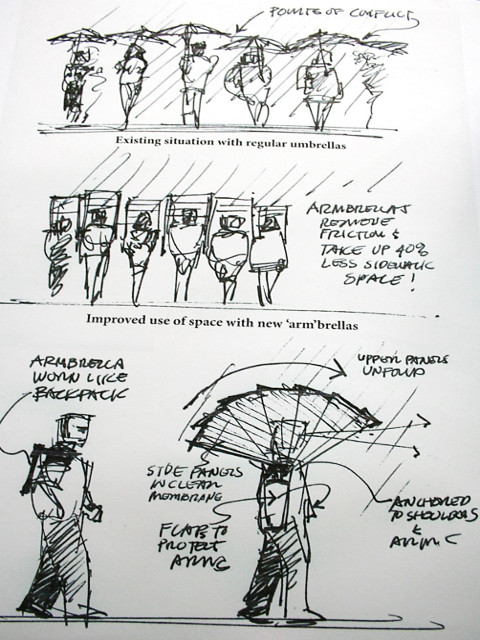 POINTS OF CONFLICT
Existing situation with regular umbrellas
ARMBRELLAS
REMOVE
FRICTION &
TAKE UP 40%
LESS SIDEWALK
SPACE!
Improved use of space with new 'arm'brellas
ARMBRELLA
WORN LIKE
BACKPACK
UPPER PANELS
UNFOLD
SIDE PANELS
IN CLEAR
MEMBRANE
FLAPS TO
PROTECT
ARMS
ANCHORED
TO SHOULDERS
&